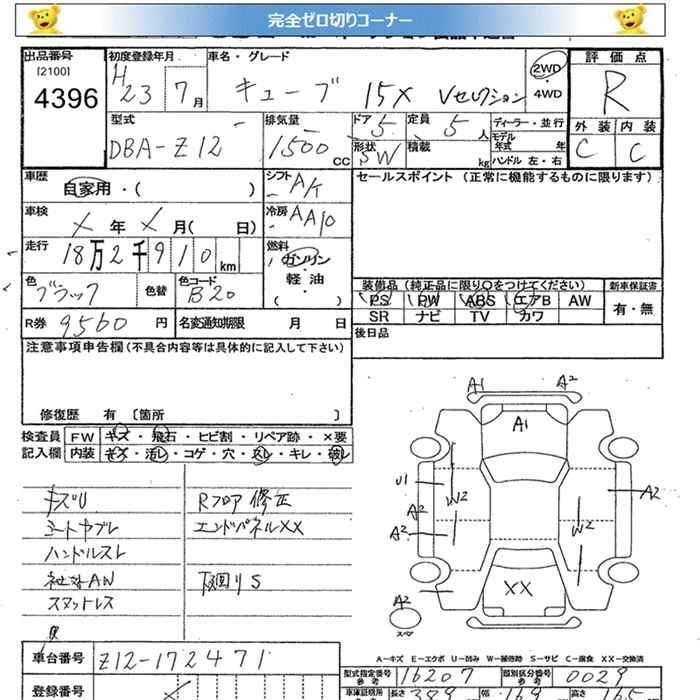 完全ゼロ切りコーナー
出品番号
[2100]
4396
初度登録年月
H23 7月
車名・グレード
キューブ 15X Vセレクション
2WD
・
4WD
評価点
R
外装 内装
C C
型式
DBA-Z12
排気量
1500 CC
ドア 5
定員 5人
形状 SW
積載 kg
ディーラー・並行
モデル年式 年
ハンドル 左・右
車歴
自家用・( )
シフト
A/C
冷房
AAC
車検
X年X月( 日)
走行
18万2千910km
燃料
ガソリン
軽油
( )
色
ブラック
色替
色コード
B20
R券 9560円
名変通知期限 月 日
セールスポイント (正常に機能するものに限ります)
装備品 (純正品に限り○をつけてください)
PS PW ABS エアB AW
SR ナビ TV カワ
新車保証書
有・無
後日品
注意事項申告欄(不具合内容等は具体的に記入して下さい)
修復歴 有 〔箇所 〕
検査員
記入欄
FW キズ・飛石・ヒビ割・リペア跡・×要
内装 キズ・汚レ・コゲ・穴・スレ・キレ・破レ
キズU
コートヤブレ
ハンドルスレ
社外AW
スタットレス
Rフロア修正
エンドパネルXX
下廻りS
A1
A2
A1
U1
W2
A2
A2
A2
W2
XX
A2
スペア
A-キズ E-エクボ U-凹み W-補修跡 S-サビ C-腐食 XX-交換済
車台番号
Z12-172471
登録番号
型式指定番号
参考
16207
類別区分番号
参考
0029
車庫証明用
長さ 389
幅 169
高さ 165